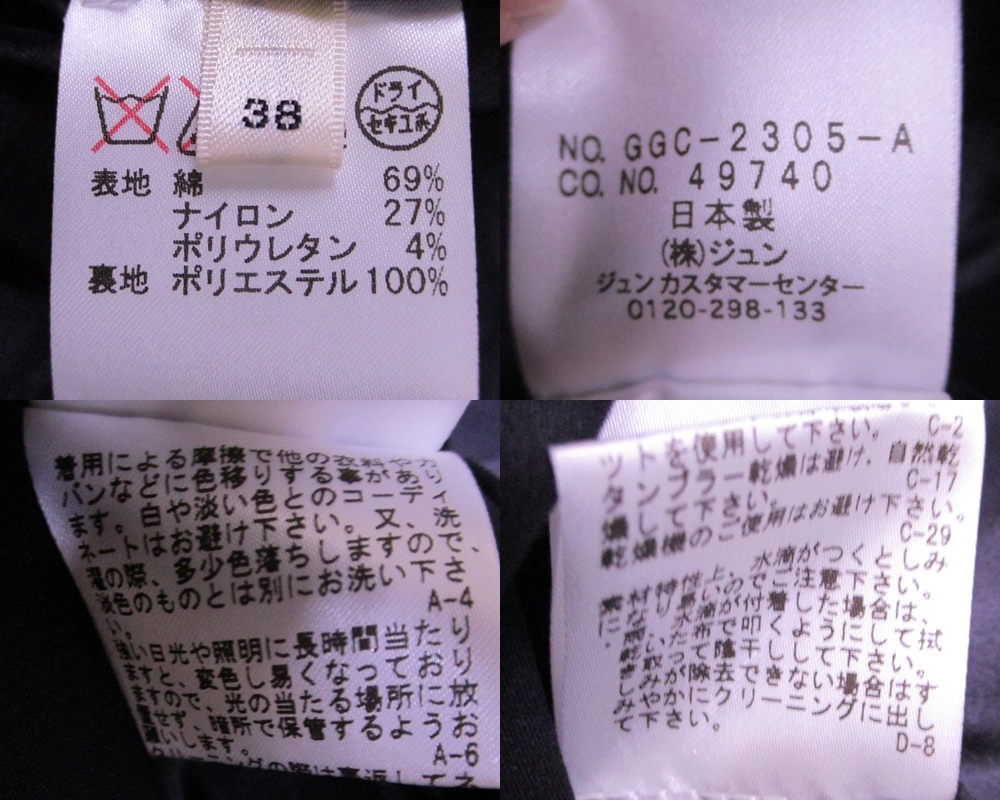 38
ドライ
セキユ系
表地 綿 69%
ナイロン 27%
ポリウレタン 4%
裏地 ポリエステル 100%
NO. GGC-2305-A
CO. NO. 49740
日本製
(株)ジュン
ジュンカスタマーセンター
0120-298-133
着用による摩擦で他の衣料やカ
バンなどに色移りする事があり
ます。白や淡い色とのコーディ
ネートはお避け下さい。又、洗
濯の際、多少色落ちしますので、
淡色のものとは別にお洗い下さ
い。
A-4
強い日光や照明に長時間当たり
ますと、変色し易くなっており
ますので、光の当たる場所に放
置せず、暗所で保管するようお
願いします。
A-6
クリーニングの際は裏返してネ
ットを使用して下さい。
C-2
タンブラー乾燥は避け、自然乾
燥して下さい。
C-17
乾燥機のご使用はお避け下さい。
C-29
素材特性上、水滴がつくとしみ
になり易いのでご注意下さい。
水滴が付着した場合は、
乾いた布で叩くようにして拭
き取って陰干しして下さい。
しみが除去できない場合はす
みやかにクリーニングに出し
て下さい。
D-8